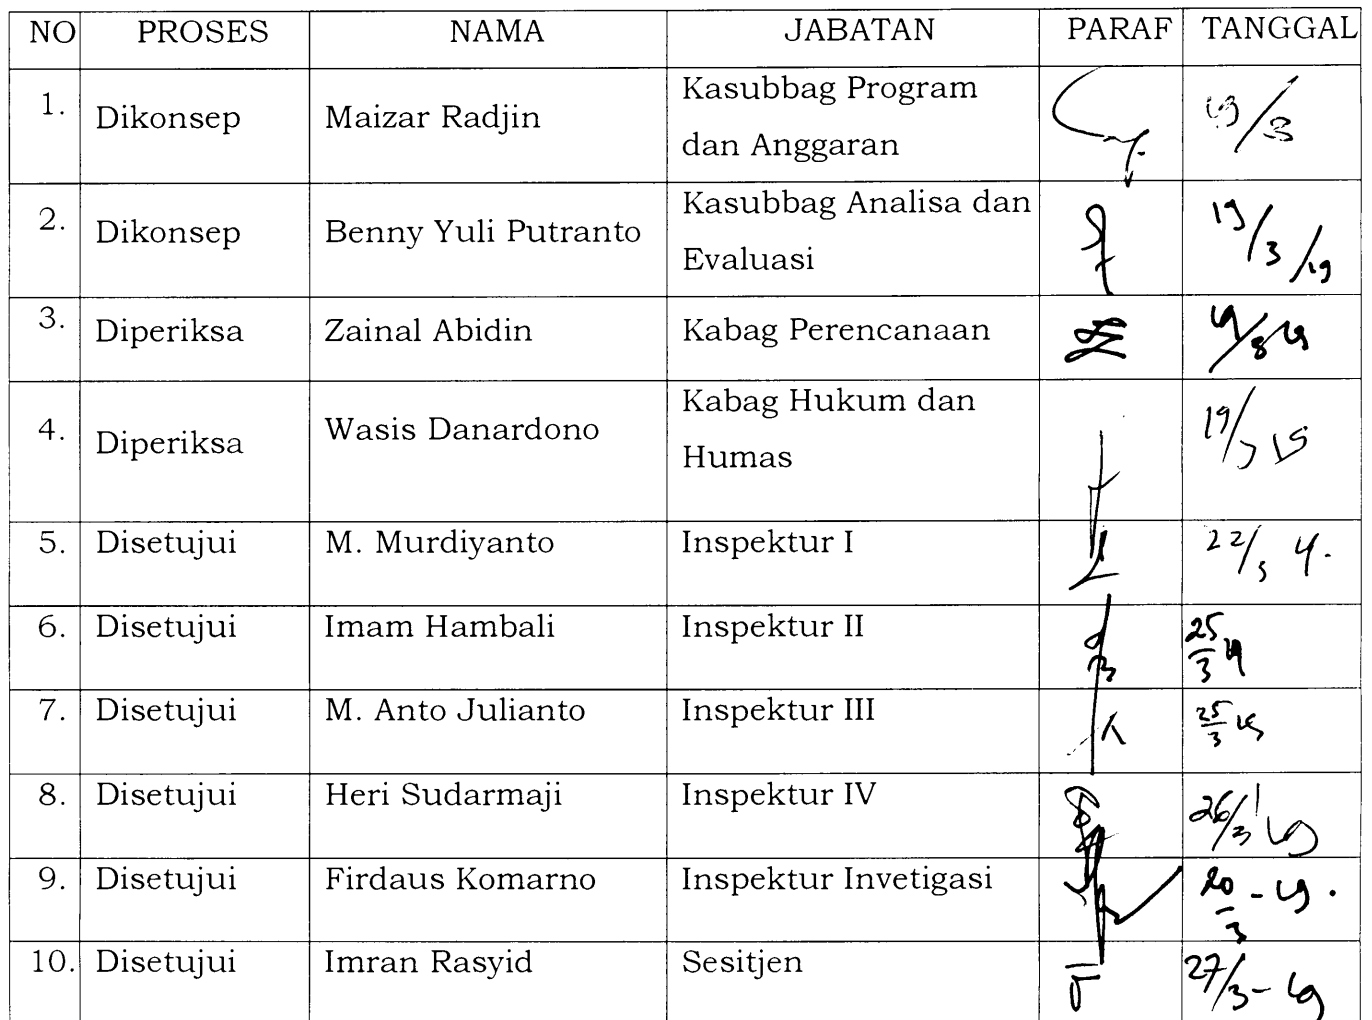 NO PROSES NAMA JABATAN PARAF TANGGAL
1. Dikonsep Maizar Radjin Kasubbag Program
dan Anggaran
2. Dikonsep Benny Yuli Putranto Kasubbag Analisa dan
Evaluasi 19/3/19
3. Diperiksa Zainal Abidin Kabag Perencanaan
4. Diperiksa Wasis Danardono Kabag Hukum dan
Humas
5. Disetujui M. Murdiyanto Inspektur I
6. Disetujui Imam Hambali Inspektur II 25/3
7. Disetujui M. Anto Julianto Inspektur III 25/3
8. Disetujui Heri Sudarmaji Inspektur IV 26/3
9. Disetujui Firdaus Komarno Inspektur Invetigasi 20/3
10. Disetujui Imran Rasyid Sesitjen 27/3